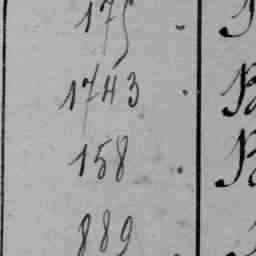 175
1743
158
889